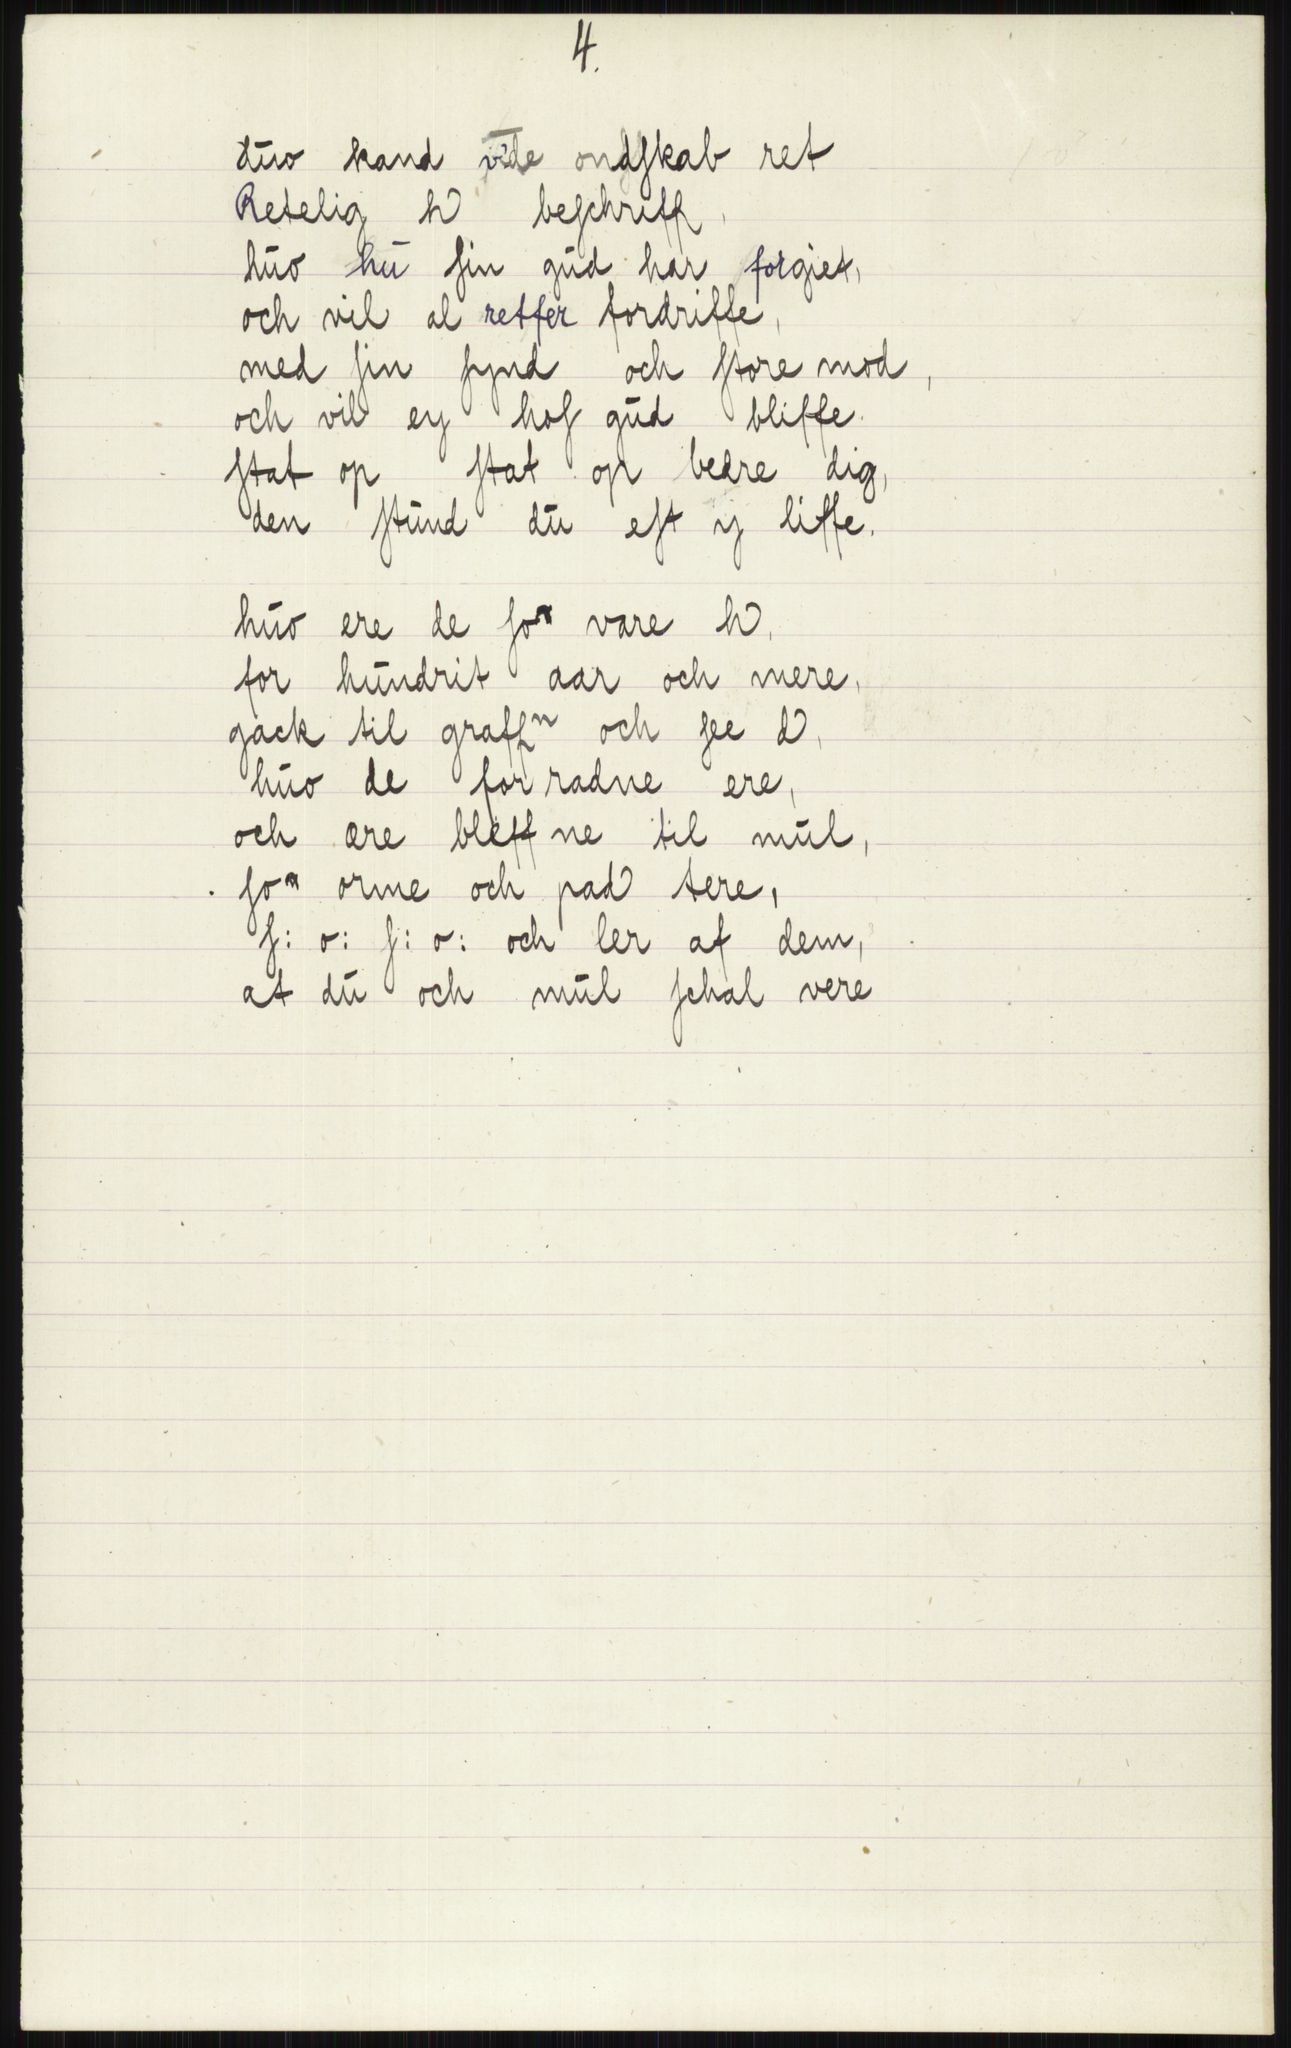 4.
dūo kand vide ondſkab ret
Retelig h beſchriff,
hūo hū ſin gūd har forgiet,
och vil al retfer fordriffe,
med ſin ſynd och ſtore mod,
och vil ey hoſ gūd bliffe.
ſtat op ſtat op bedre dig,
den ſtūnd dū eſt y liffe.
hūo ere de ſoʳ vare h,
for hūndrit aar och mere,
gack til graffⁿ och ſee d,
hūo de forradne ere,
och ære bleffne til mūl,
ſoᵐ orme och pad tere,
ſ: o: ſ: o: och ler af dem,
at dū och mūl ſchal vere